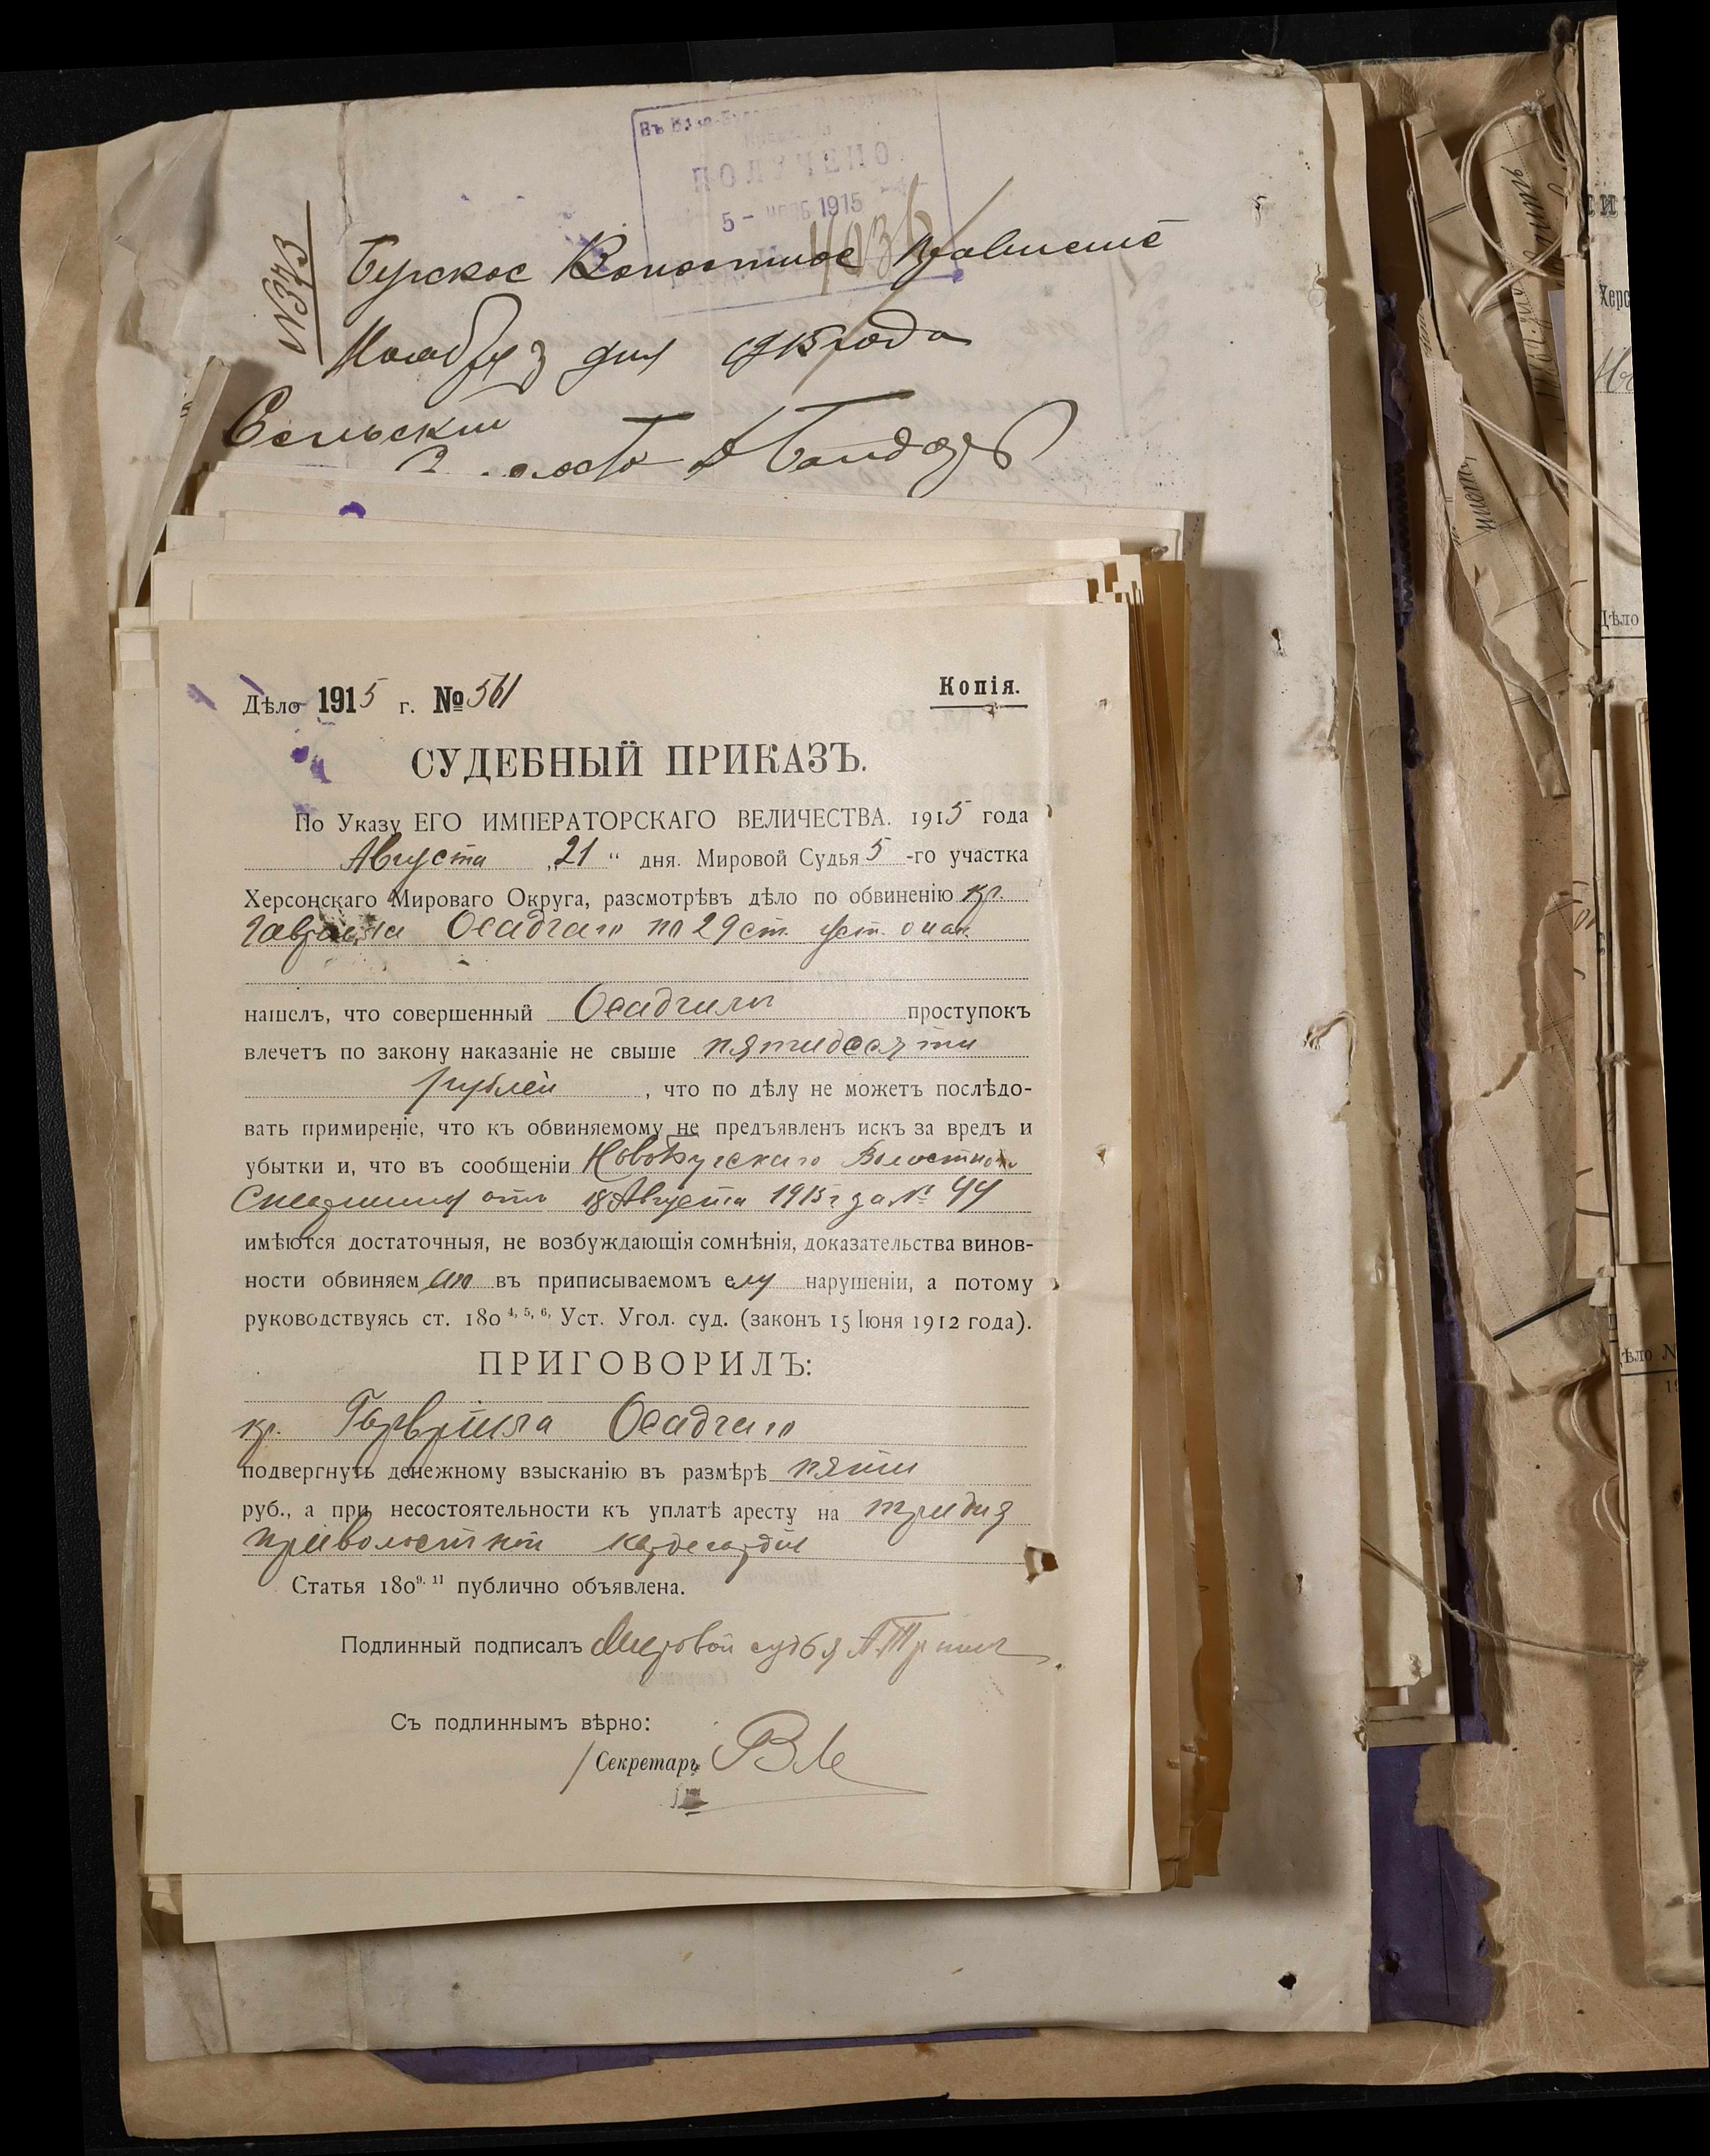 ПОЛУЧЕНО
5 - 1915
№373
Бугское Волостное Правление
Ноября 3 дня 1915 года
Сельский
Дѣло 1915 г. № 561
Копія.
СУДЕБНЫЙ ПРИКАЗЪ.
По Указу ЕГО ИМПЕРАТОРСКАГО ВЕЛИЧЕСТВА. 1915 года
Августа „21“ дня. Мировой Судья 5-го участка
Херсонскаго Мироваго Округа, разсмотрѣвъ дѣло по обвиненію кр.
Гавріила Осадчаго по 29 ст. уст. о нак.
нашелъ, что совершенный Осадчимъ проступокъ
влечетъ по закону наказаніе не свыше пятидесяти
рублей, что по дѣлу не можетъ послѣдо-
вать примиреніе, что къ обвиняемому не предъявленъ искъ за вредъ и
убытки и, что въ сообщеніи НовоБугскаго Волостного
Старшины отъ 18 Августа 1915 г за № 44
имѣются достаточныя, не возбуждающія сомнѣнія, доказательства винов-
ности обвиняемаго въ приписываемомъ ему нарушеніи, а потому
руководствуясь ст. 180 4, 5, 6, Уст. Угол. суд. (законъ 15 Іюня 1912 года).
ПРИГОВОРИЛЪ:
кр. Гавріила Осадчаго
подвергнуть денежному взысканію въ размѣрѣ пяти
руб., а при несостоятельности къ уплатѣ аресту на три дня
при волостной
Статья 180 9. 11 публично объявлена.
Подлинный подписалъ Мировой судья А.
Съ подлиннымъ вѣрно:
/ Секретарь
Херс
Дѣло
Дѣло №